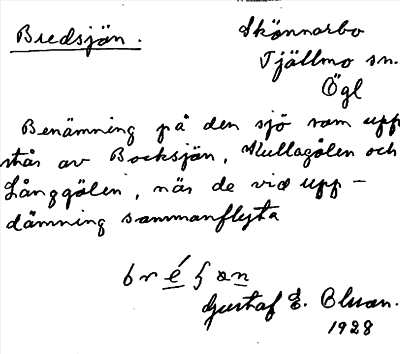 Bredsjön.
Skönnarbo
Tjällmo sn.
Ögl
Benämning på den sjö som upp
står av Bocksjön, Kullagölen och
Långgölen, när de vid upp-
dämning sammanflyta
Gustaf E. Olson.
1928